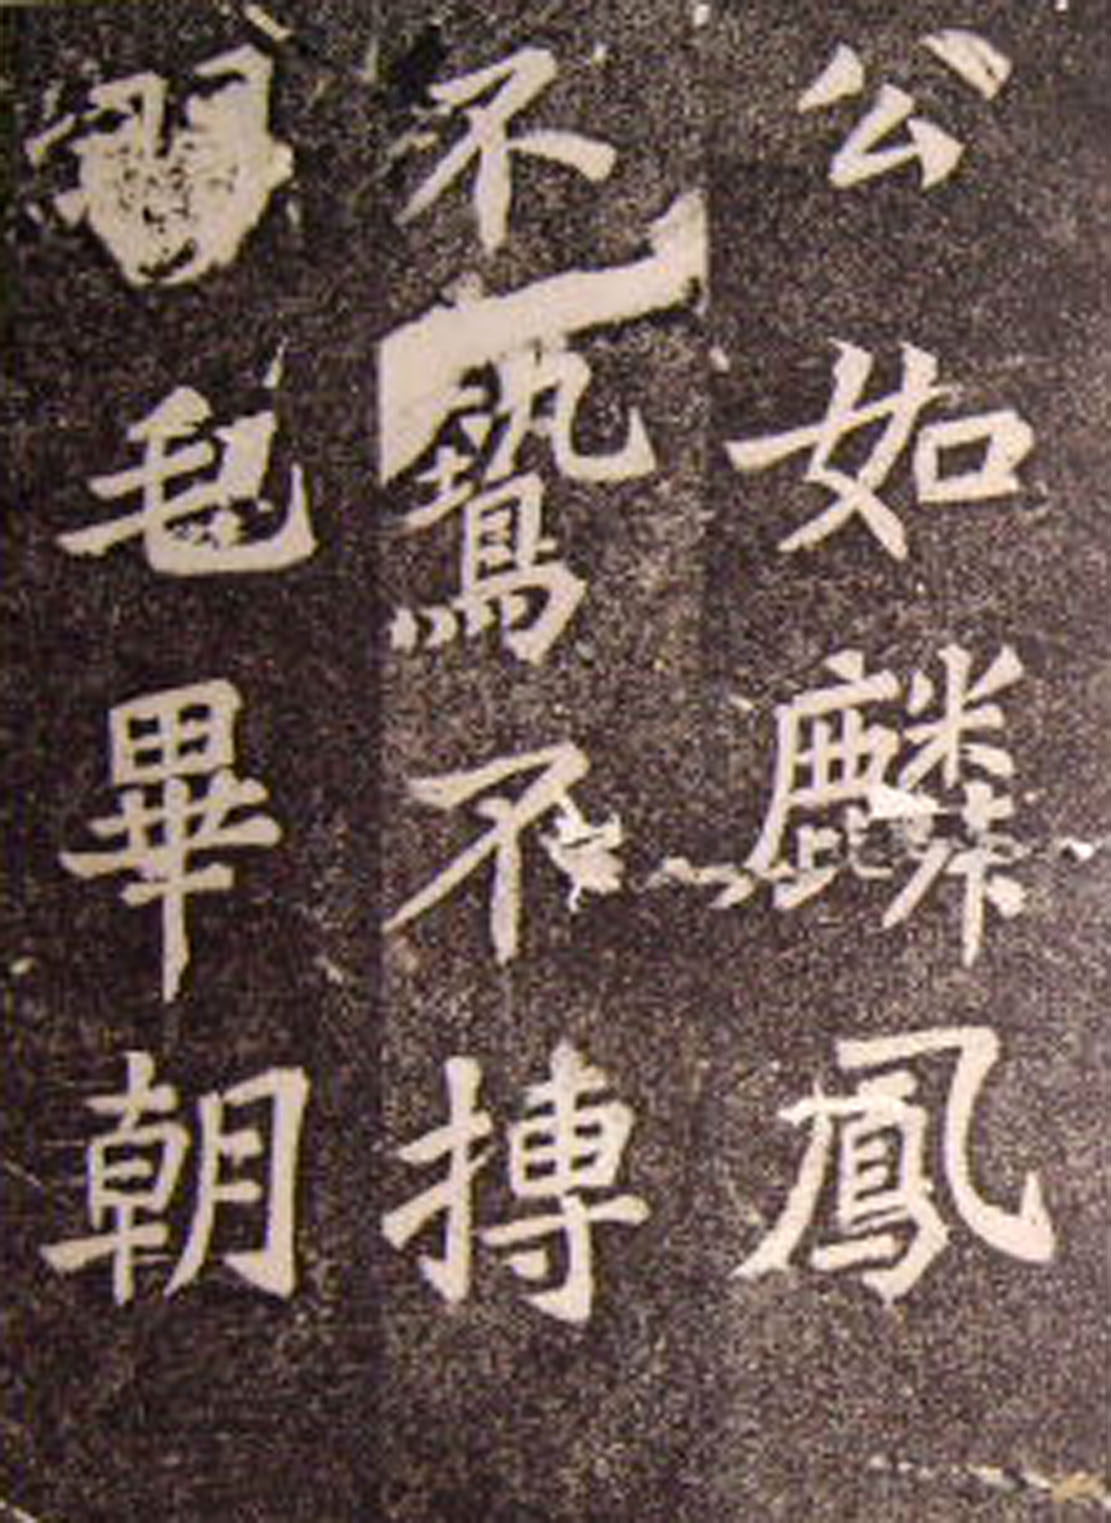 公如麟鳳
不鷙不搏
羽毛畢朝